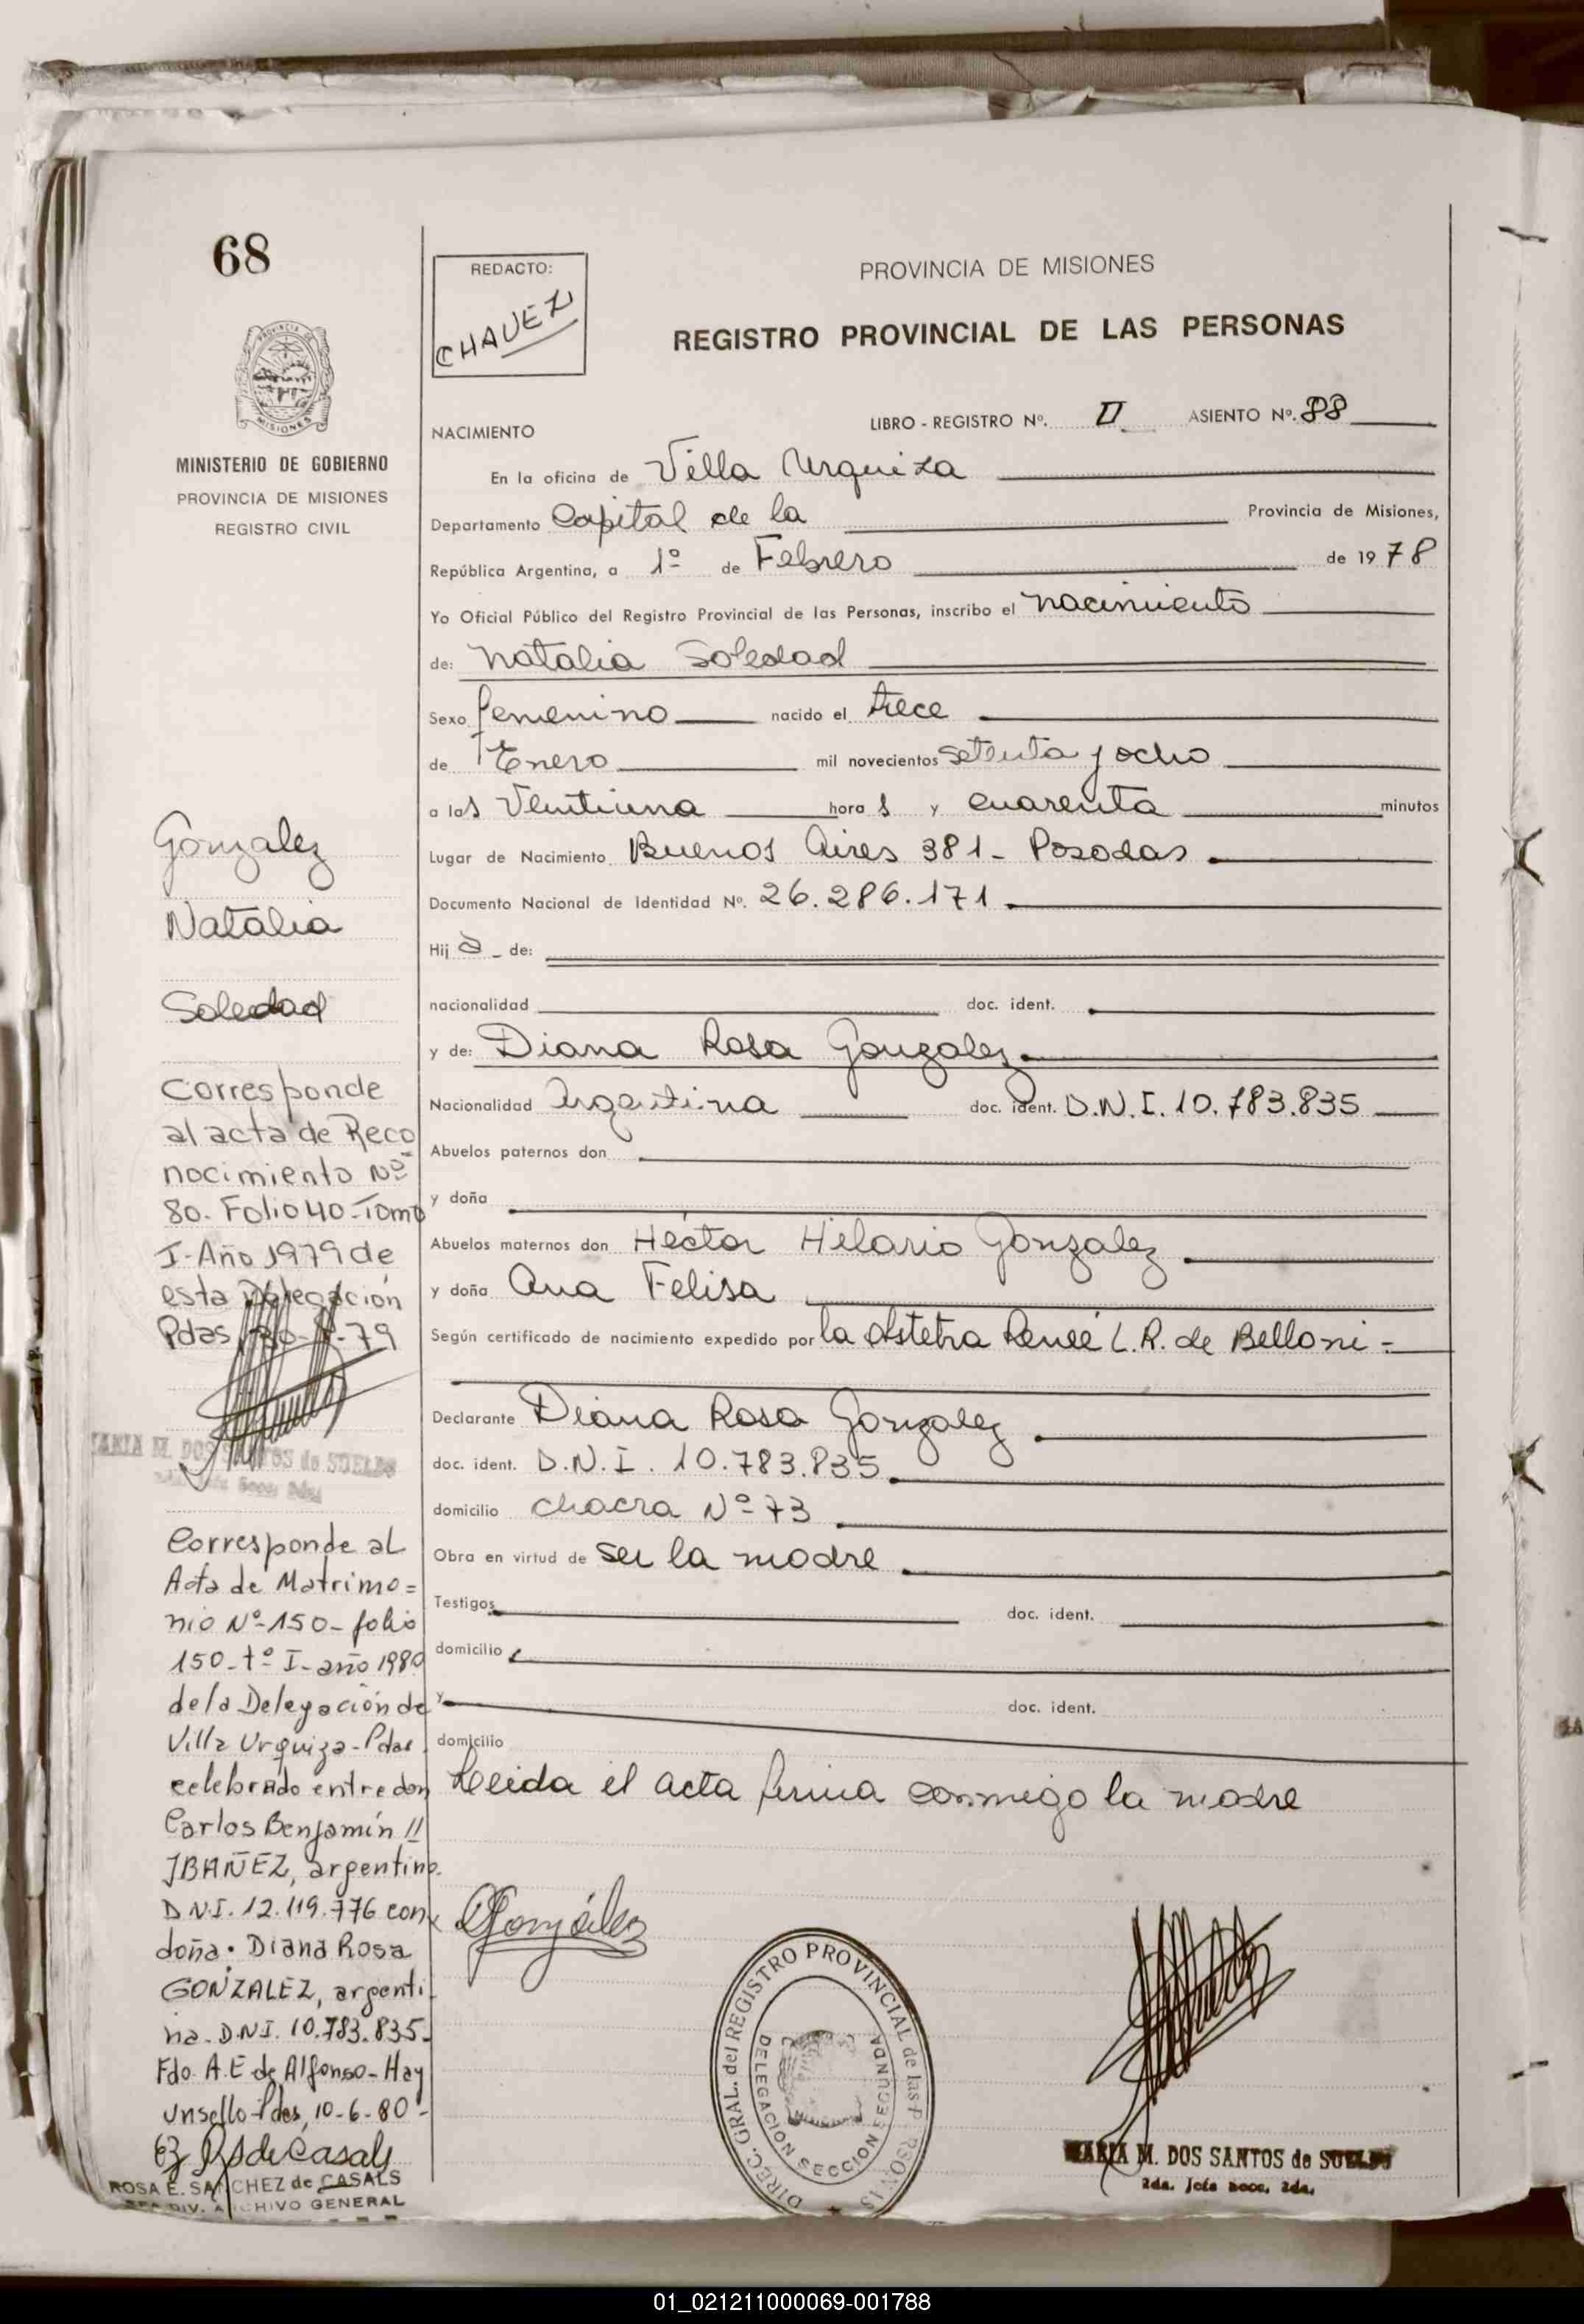 68
REDACTO:
CHAVEZ
PROVINCIA DE MISIONES
REGISTRO PROVINCIAL DE LAS PERSONAS
PROVINCIA
MISIONES
MINISTERIO DE GOBIERNO
PROVINCIA DE MISIONES
REGISTRO CIVIL
LIBRO - REGISTRO Nº. II ASIENTO Nº. 88
NACIMIENTO
En la oficina de Villa Urquiza
Departamento Capital de la Provincia de Misiones,
República Argentina, a 1º de Febrero de 1978
Yo Oficial Público del Registro Provincial de las Personas, inscribo el nacimiento
de: Natalia Soledad
Sexo femenino nacido el trece
de Enero mil novecientos setenta y ocho
a las Ventiuna horas y cuarenta minutos
Lugar de Nacimiento Buenos Aires 381 - Posadas
Documento Nacional de Identidad Nº. 26.286.171
Hija - de:
nacionalidad doc. ident.
y de: Diana Rosa Gonzalez
Nacionalidad Argentina doc. ident. D.N.I. 10.783.835
Abuelos paternos don
y doña
Abuelos maternos don Héctor Hilario Gonzalez
y doña Ana Felisa
Según certificado de nacimiento expedido por la obstetra Reneé L.R. de Belloni =
Declarante Diana Rosa Gonzalez
doc. ident. D.N.I. 10.783.835
domicilio chacra Nº 73
Obra en virtud de ser la madre
Testigos doc. ident.
domicilio
y doc. ident.
domicilio
Leida el acta firma conmigo la madre
Gonzalez
Natalia
Soledad
Corresponde
al acta de Reco
nocimiento Nº
80. Folio 40 - Tomo
I - Año 1979 de
esta Delegación
Pdas, 30- -79
MARIA M. DOS SANTOS de SUELDO
Corresponde al
Acta de Matrimo=
nio Nº 150 - folio
150 - tº I - año 1980
de la Delegación de
Villa Urquiza - Pdas.
celebrado entre don
Carlos Benjamín //
IBAÑEZ, argentino.
D.N.I. 12.119.776 con
doña. Diana Rosa
GONZALEZ, argenti
na. D.N.I. 10.783.835.
Fdo. A.E de Alfonso - Hay
un sello - Pdas, 10-6-80-
RSdeCasals
ROSA E. SANCHEZ de CASALS
DIV. ARCHIVO GENERAL
DGonzález
DIREC. GRAL. del REGISTRO PROVINCIAL de las PERSONAS
DELEGACION SECCION SEGUNDA
MARIA M. DOS SANTOS de SUELDO
2da. Jefa Secc. 2da.
01_021211000069-001788